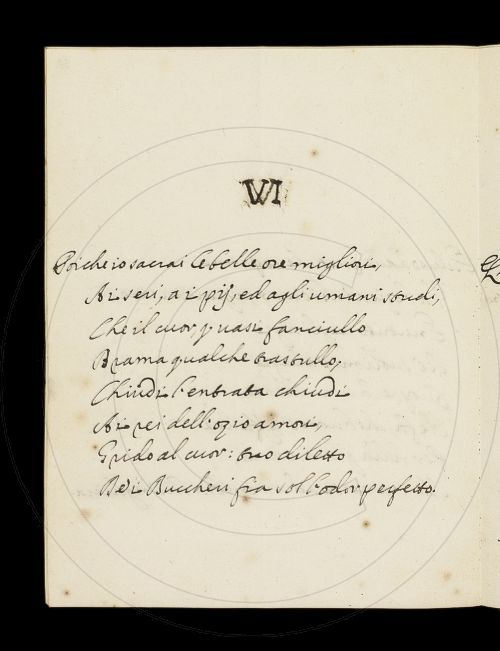 VI
Poiche io sacrai le belle ore migliori,
Ai seri, a i pij, ed agli umani studi,
Che il cuor, quasi fanciullo
Brama qualche trastullo,
Chiudi l'entrata chiudi
Ai rei dell'ozio amori,
Grido al cuor: tuo diletto
Dei Buccheri fia sol l'odor perfetto.